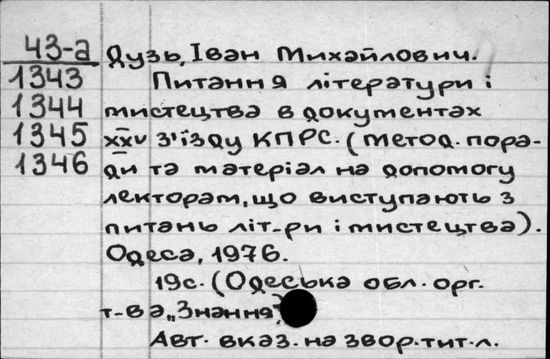 43-а Дузь, Іван Михайлович.
1343 Питання літератури і
1344 мистецтва в документах
1345 XXV з'їзду КПРС. (Метод. пора-
1346 ди та матеріал на допомогу
лекторам, що виступають з
питань літ-ри і мистецтва).
Одеса, 1976.
19с. (Одеська обл. орг.
т-ва „Знання"
Авт. вказ. на звор. тит. л.